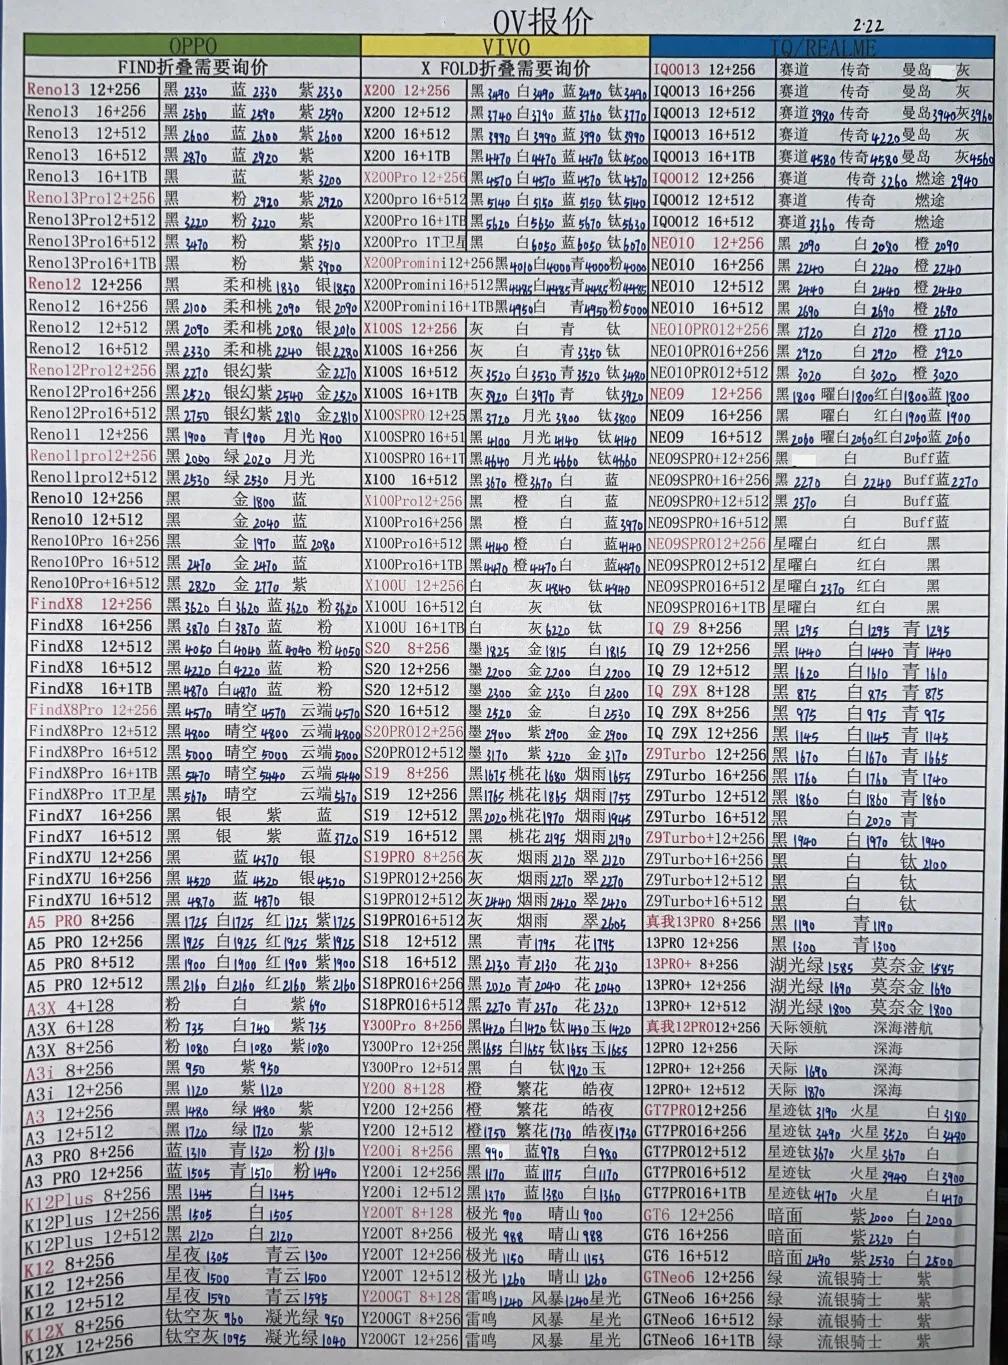 OV报价
2.22
OPPO
FIND折叠需要询价
Reno13 12+256 黑2330 蓝2330 紫2330
Reno13 16+256 黑2560 蓝2590 紫2590
Reno13 12+512 黑2600 蓝2600 紫2600
Reno13 16+512 黑2870 蓝2920 紫
Reno13 16+1TB 黑 蓝 紫3200
Reno13Pro12+256 黑 粉2920 紫2920
Reno13Pro12+512 黑3220 粉3220 紫
Reno13Pro16+512 黑3470 粉 紫3510
Reno13Pro16+1TB 黑 粉 紫3900
Reno12 12+256 黑 柔和桃1830 银1850
Reno12 16+256 黑2100 柔和桃2090 银2090
Reno12 12+512 黑2090 柔和桃2080 银2010
Reno12 16+512 黑2330 柔和桃2240 银2280
Reno12Pro12+256 黑2270 银幻紫 金2270
Reno12Pro16+256 黑2520 银幻紫2540 金2520
Reno12Pro16+512 黑2750 银幻紫2810 金2810
Reno11 12+256 黑1900 青1900 月光1900
Reno11pro12+256 黑2000 绿2020 月光
Reno11pro12+512 黑2530 绿2530 月光
Reno10 12+256 黑 金1800 蓝
Reno10 12+512 黑 金2040 蓝
Reno10Pro 16+256 黑 金1970 蓝2080
Reno10Pro 16+512 黑2470 金2470 蓝
Reno10Pro+16+512 黑2820 金2770 紫
FindX8 12+256 黑3620 白3620 蓝3620 粉3620
FindX8 16+256 黑3870 白3870 蓝 粉
FindX8 12+512 黑4050 白4040 蓝4040 粉4050
FindX8 16+512 黑4220 白4220 蓝 粉
FindX8 16+1TB 黑4870 白4870 蓝 粉
FindX8Pro 12+256 黑4570 晴空4570 云端4570
FindX8Pro 12+512 黑4800 晴空4800 云端4800
FindX8Pro 16+512 黑5000 晴空5000 云端5000
FindX8Pro 16+1TB 黑5470 晴空5440 云端5440
FindX8Pro 1T卫星 黑5670 晴空 云端5670
FindX7 16+256 黑 银 紫 蓝
FindX7 16+512 黑 银 紫 蓝3720
FindX7U 12+256 黑 蓝4370 银
FindX7U 16+256 黑4520 蓝4520 银4520
FindX7U 16+512 黑4870 蓝4870 银
A5 PRO 8+256 黑1725 白1725 红1725 紫1725
A5 PRO 12+256 黑1925 白1925 红1925 紫1925
A5 PRO 8+512 黑1900 白1900 红1900 紫1900
A5 PRO 12+512 黑2160 白2160 红2160 紫2160
A3X 4+128 粉 白 紫690
A3X 6+128 粉735 白740 紫735
A3X 8+256 粉1080 白1080 紫1080
A3i 8+256 黑950 紫950
A3i 12+256 黑1120 紫1120
A3 12+256 黑1480 绿1480 紫
A3 12+512 黑1720 绿1720 紫
A3 PRO 8+256 蓝1310 青1320 粉1310
A3 PRO 12+256 蓝1505 青1570 粉1490
K12Plus 8+256 黑1345 白1345
K12Plus 12+256 黑1505 白1505
K12Plus 12+512 黑2120 白2120
K12 8+256 星夜1305 青云1300
K12 12+256 星夜1500 青云1500
K12 12+512 星夜1590 青云1595
K12X 8+256 钛空灰960 凝光绿950
K12X 12+256 钛空灰1095 凝光绿1040
VIVO
X FOLD折叠需要询价
X200 12+256 黑3490 白3490 蓝3490 钛3490
X200 16+256 黑3740 白3790 蓝3760 钛3770
X200 12+512 黑3990 白3990 蓝3990 钛3990
X200 16+1TB 黑4470 白4470 蓝4470 钛4500
X200Pro 12+256 黑4570 白4570 蓝4570 钛4570
X200pro 16+512 黑5140 白5150 蓝5150 钛5140
X200Pro 16+1TB 黑5620 白5630 蓝5670 钛5630
X200Pro 1T卫星 黑 白6050 蓝6050 钛6070
X200Promini12+256 黑4010 白4000 青4000 粉4000
X200Promini16+512 黑4485 白4485 青4485 粉4485
X200Promini16+1TB 黑4950 白 青4950 粉5000
X100S 12+256 灰 白 青 钛
X100S 16+256 灰 白 青3350 钛
X100S 16+512 灰3520 白3530 青3520 钛3480
X100S 16+1TB 灰3920 白3970 青 钛3920
X100SPRO 12+25 黑3720 月光3800 钛3800
X100SPRO 16+51 黑4100 月光4140 钛4140
X100SPRO 16+1T 黑4640 月光4660 钛4660
X100 16+512 黑3670 橙3670 白 蓝
X100Pro12+256 黑 橙 白 蓝
X100Pro16+256 黑 橙 白 蓝3970
X100Pro16+512 黑4140 橙 白 蓝4140
X100Pro16+1TB 黑4470 橙4470 白 蓝4470
X100U 12+256 白 灰4840 钛4940
X100U 16+512 白 灰 钛
X100U 16+1TB 白 灰6220 钛
S20 8+256 墨1825 金1815 白1815
S20 12+256 墨2200 金2200 白2200
S20 12+512 墨2300 金2330 白2300
S20 16+512 墨2520 金 白2530
S20PRO12+256 墨2900 紫2900 金2900
S20PRO12+512 墨3170 紫3220 金3170
S19 8+256 黑1675 桃花1680 烟雨1655
S19 12+256 黑1765 桃花1865 烟雨1755
S19 12+512 黑2020 桃花1970 烟雨1945
S19 16+512 黑 桃花2195 烟雨2190
S19PRO 8+256 灰 烟雨2120 翠2120
S19PRO12+256 灰 烟雨2270 翠2270
S19PRO12+512 灰2440 烟雨2420 翠2420
S19PRO16+512 灰 烟雨 翠2605
S18 12+512 黑 青1795 花1795
S18 16+512 黑2130 青2130 花2130
S18PRO16+256 黑2020 青2040 花2040
S18PRO16+512 黑2270 青2370 花2320
Y300Pro 8+256 黑1420 白1420 钛1430 玉1420
Y300Pro 12+256 黑1655 白1655 钛1655 玉1655
Y300Pro 12+512 黑 白 钛1920 玉
Y200 8+128 橙 繁花 皓夜
Y200 12+256 橙 繁花 皓夜
Y200 12+512 橙1750 繁花1730 皓夜1730
Y200i 8+256 黑990 蓝978 白980
Y200i 12+256 黑1170 蓝1175 白1170
Y200i 12+512 黑1370 蓝1380 白1360
Y200T 8+128 极光900 晴山900
Y200T 8+256 极光988 晴山988
Y200T 12+256 极光1150 晴山1153
Y200T 12+512 极光1260 晴山1260
Y200GT 8+128 雷鸣1240 风暴1240 星光
Y200GT 8+256 雷鸣 风暴 星光
Y200GT 12+256 雷鸣 风暴 星光
IQ/REALME
IQ0013 12+256 赛道 传奇 曼岛 灰
IQ0013 16+256 赛道 传奇 曼岛 灰
IQ0013 12+512 赛道3980 传奇 曼岛3940 灰3960
IQ0013 16+512 赛道 传奇4220 曼岛 灰
IQ0013 16+1TB 赛道4580 传奇4580 曼岛 灰4560
IQ0012 12+256 赛道 传奇3260 燃途2940
IQ0012 12+512 赛道 传奇 燃途
IQ0012 16+512 赛道3360 传奇 燃途
NE010 12+256 黑2090 白2080 橙2090
NE010 16+256 黑2240 白2240 橙2240
NE010 12+512 黑2440 白2440 橙2440
NE010 16+512 黑2690 白2690 橙2690
NE010PRO12+256 黑2720 白2720 橙2720
NE010PRO16+256 黑2920 白2920 橙2920
NE010PRO12+512 黑3020 白3020 橙3020
NE09 12+256 黑1800 曜白1800 红白1800 蓝1800
NE09 16+256 黑 曜白 红白1900 蓝1900
NE09 16+512 黑2060 曜白2060 红白2060 蓝2060
NE09SPRO+12+256 黑 白 Buff蓝
NE09SPRO+16+256 黑2270 白2240 Buff蓝2270
NE09SPRO+12+512 黑2370 白 Buff蓝
NE09SPRO+16+512 黑 白 Buff蓝
NE09SPRO12+256 星曜白 红白 黑
NE09SPRO16+256 星曜白 红白 黑
NE09SPRO16+512 星曜白2370 红白 黑
NE09SPRO16+1TB 星曜白 红白 黑
IQ Z9 8+256 黑1295 白1295 青1295
IQ Z9 12+256 黑1440 白1440 青1440
IQ Z9 12+512 黑1620 白1610 青1610
IQ Z9X 8+128 黑875 白875 青875
IQ Z9X 8+256 黑975 白975 青975
IQ Z9X 12+256 黑1145 白1145 青1145
Z9Turbo 12+256 黑1670 白1670 青1665
Z9Turbo 16+256 黑1760 白1760 青1740
Z9Turbo 12+512 黑1860 白1860 青1860
Z9Turbo 16+512 黑 白2020 青
Z9Turbo+12+256 黑1940 白1970 钛1940
Z9Turbo+16+256 黑 白 钛2100
Z9Turbo+12+512 黑 白 钛
Z9Turbo+16+512 黑 白 钛
真我13PRO 8+256 黑1190 青1190
13PRO 12+256 黑1300 青1300
13PRO+ 8+256 湖光绿1585 莫奈金1585
13PRO+ 12+256 湖光绿1690 莫奈金1690
13PRO+ 12+512 湖光绿1800 莫奈金1800
真我12PRO12+256 天际领航 深海潜航
12PRO 12+256 天际 深海
12PRO+ 12+256 天际1690 深海
12PRO+ 12+512 天际1870 深海
GT7PRO12+256 星迹钛3190 火星 白3180
GT7PRO16+256 星迹钛3490 火星3520 白3480
GT7PRO12+512 星迹钛3670 火星3670 白
GT7PRO16+512 星迹钛 火星3940 白3900
GT7PRO16+1TB 星迹钛4170 火星 白4170
GT6 12+256 暗面 紫2000 白2000
GT6 16+256 暗面 紫2320 白
GT6 16+512 暗面2490 紫2530 白2500
GTNeo6 12+256 绿 流银骑士 紫
GTNeo6 16+256 绿 流银骑士 紫
GTNeo6 16+512 绿 流银骑士 紫
GTNeo6 16+1TB 绿 流银骑士 紫